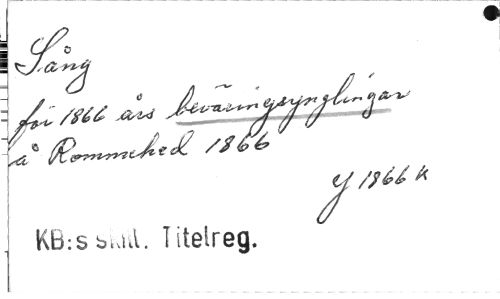 Sång
för 1866 års beväringsynglingar
å Rommehed 1866
Y 1866 K
KB:s skill. Titelreg.